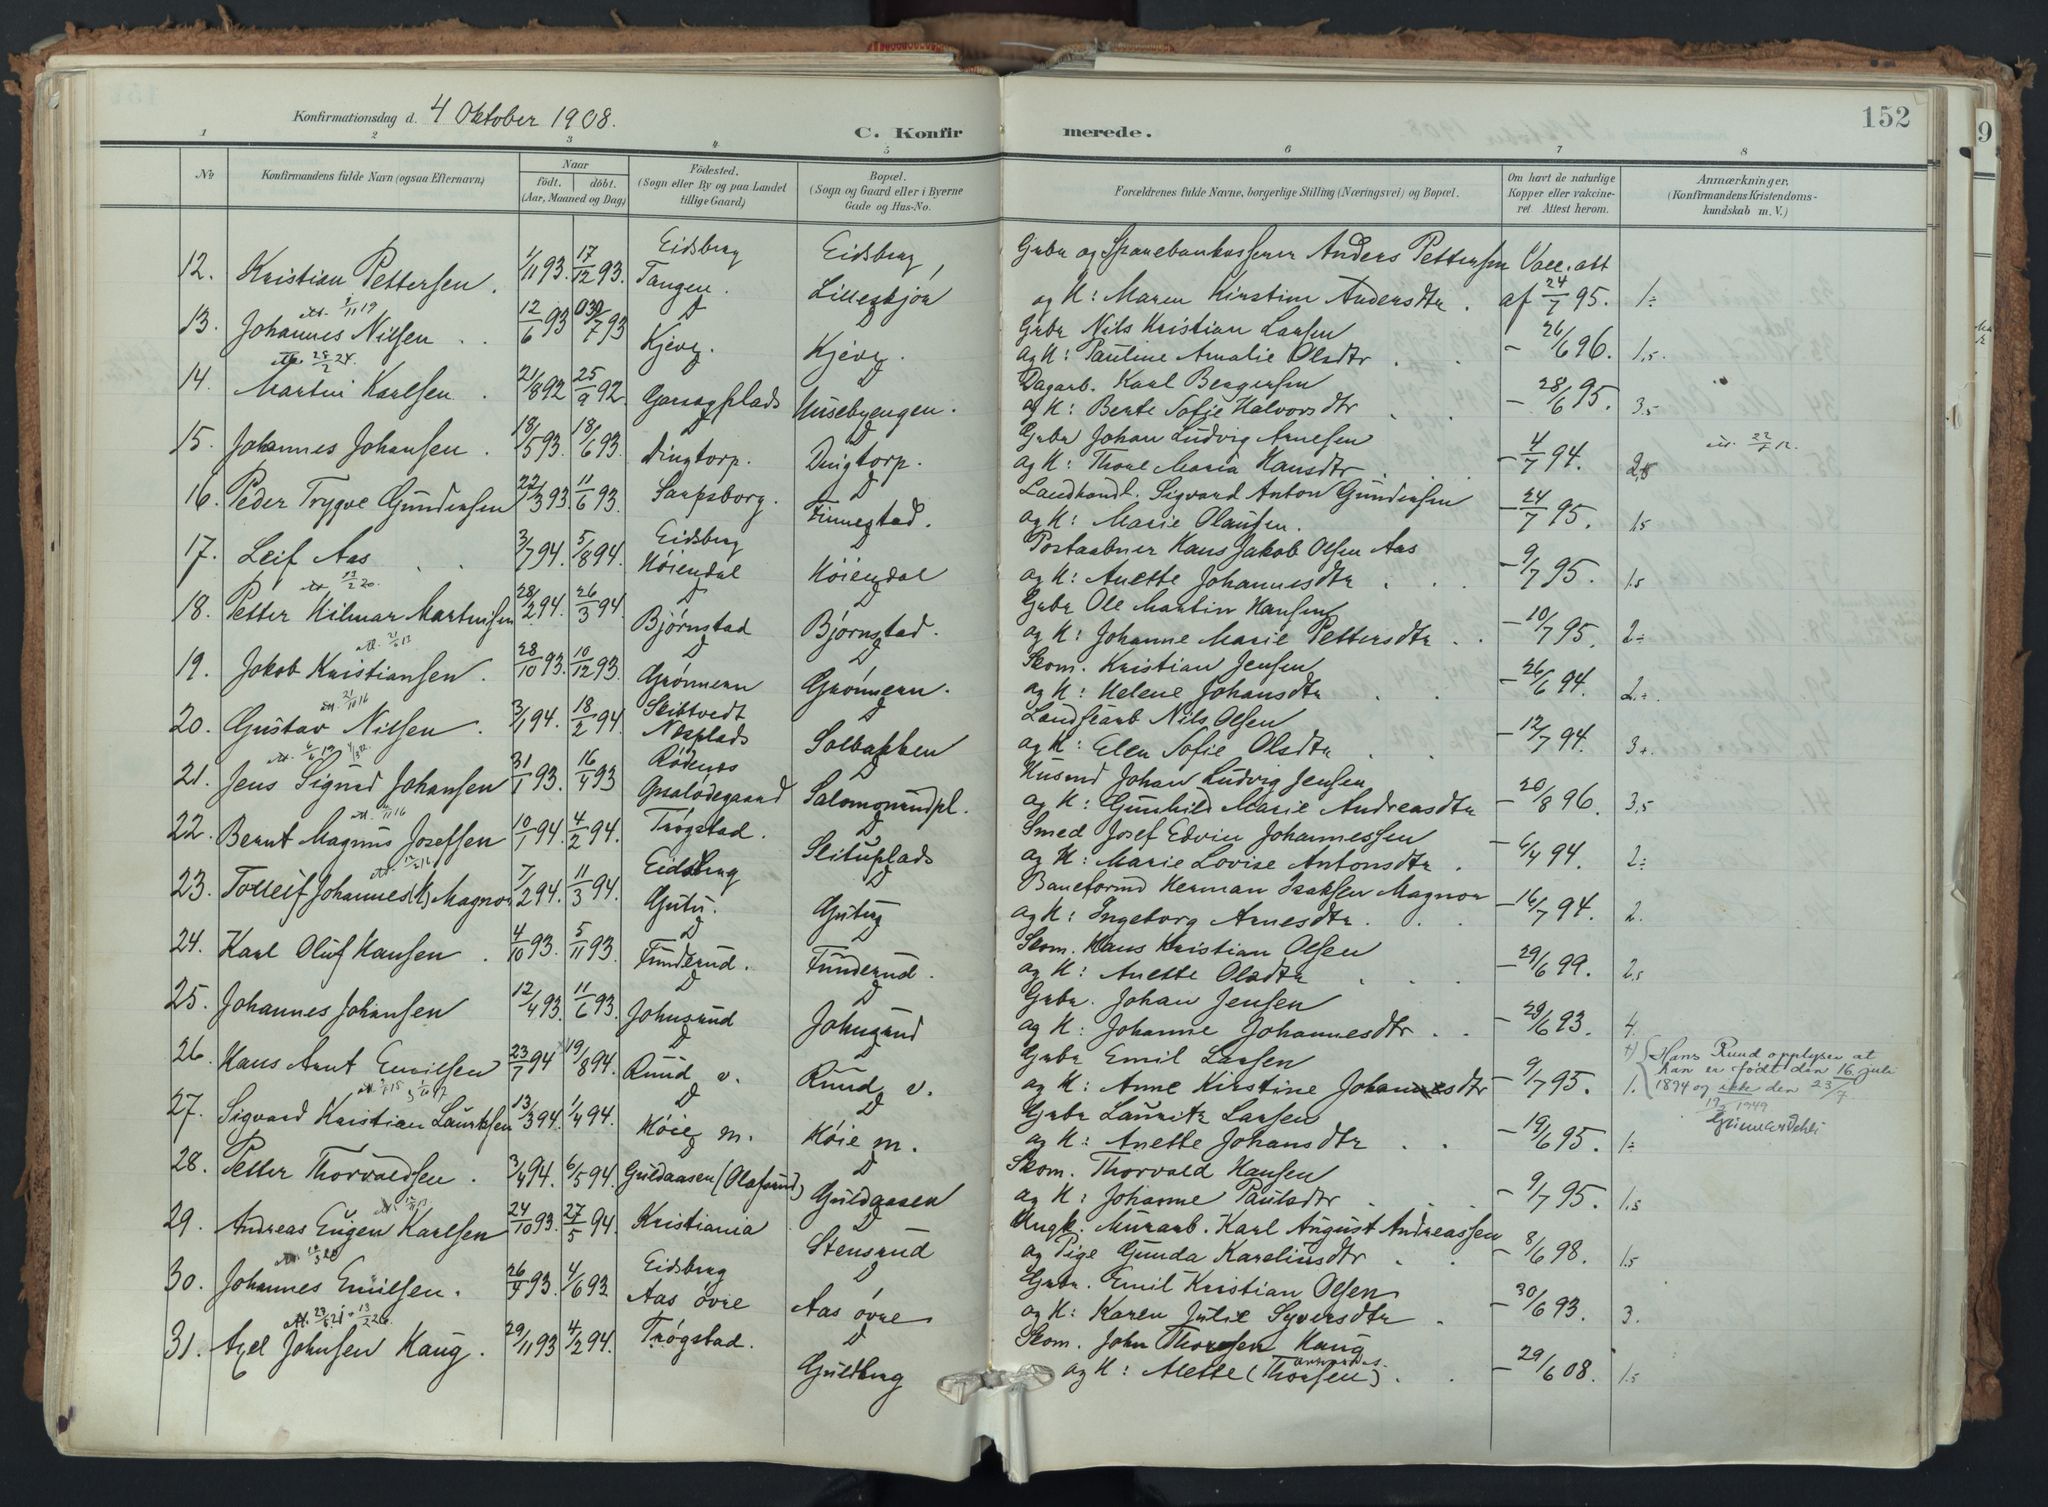 Konfirmationsdag d. 4 Oktober 1908.
C. Konfir merede.
152
1 2 3 4 5 6 7 8
No.
Konfirmandens fulde Navn (ogsaa Efternavn)
Naar
födt. döbt.
(Aar, Maaned og Dag)
Födested.
(Sogn eller By og paa Landet
tillige Gaard)
Bopæl.
(Sogn og Gaard eller i Byerne
Gade og Hus-No.
Forældrenes fulde Navne, borgerlige Stilling (Næringsvei) og Bopæl.
Om havt de naturlige
Kopper eller vakcine-
ret Attest herom.
Anmærkninger.
(Konfirmandens Kristendoms-
kundskab m. V.)
Eidsberg Eidsberg Gabr og Sparebankkasserer Anders Pettersen Vacc. att
12. Kristian Pettersen. 1/11 93. 17/12 93. Tangen. Lilleskjør og H: Maren Kirstine Andersdtr. af 24/7 95. 1÷
13. Johannes Nilsen 12/6 93 30/7 93 D Kjeve. D Kjeve. Gabr Nils Kristian Larsen
og H: Pauline Amalie Olsdtr - 26/6 96. 1,5.
14. Martin Karlsen 21/8 92 25/9 92. D D Husebyengen. Dagarb. Karl Bergersen
og H: Berte Sofie Halvorsdtr - 28/6 95. 3,5
15. Johannes Johansen 18/5 93. 18/6 93. D Dingtorp. D Dingtorp. Gabr Johan Ludvig Arnesen
og H: Thore Maria Hansdtr - 4/7 94. 2,5
16. Peder Trygve Gundersen 22/3 93. 11/6 93. Sarpsborg. D Finnestad. Landhandl. Sigvard Anton Gundersen
og H: Marie Olausen. - 24/7 95. 1,5
17. Leif Aas 3/7 94. 5/8 94. Eidsberg Höiendal D Höiendal Postaabner Hans Jakob Olsen Aas
og H: Anette Johannesdtr - 9/7 95. 1,5
18. Petter Hilmar Martinsen 28/2 94. 26/3 94. D Bjørnstad D Bjørnstad. Gabr Ole Martin Hansen
og H: Johanne Marie Pettersdtr - 10/7 95. 2÷
19. Jakob Kristiansen. 28/10 93. 10/12 93. D Grönnern D Grönnern. Skom. Kristian Jensen
og H: Helene Johansdtr - 26/6 94. 2÷
20. Gustav Nilsen. 3/1 94. 18/2 94. Skiptvedt Næsplads D Solbakken Landsarb Nils Olsen
og H: Elen Sofie Olsdtr - 12/7 94. 3+.
21. Jens Sigurd Johansen 31/1 93. 16/4 93 Rödenes D Salomonrudpl. Husmd Johan Ludvig Jensen
og H: Gunhild Marie Andreasdtr - 20/8 96. 3,5
22. Bernt Magnus Josefsen 10/1 94. 4/2 94. Trøgstad. D Slituplads Smed Josef Edvin Johannessen
og H: Marie Lovise Antonsdtr. - 6/4 94. 2÷
23. Tolleif Johannes (H) Magnor 7/2 94. 11/3 94. Eidsberg Gutu. D Gutu Baneformd Herman Isaksen Magnor
og H: Ingeborg Arnesdtr. - 16/7 94. 2.
24. Karl Oluf Hansen. 4/10 93. 5/11 93. D Funderud. D Funderud. Skom. Hans Kristian Olsen
og H: Anette Olsdtr - 29/6 99. 2,5
25. Johannes Johansen 12/4 93. 11/6 93. D Johnsrud D Johnsrud Gabr. Johan Jensen
og H: Johanne Johannesdtr. - 29/6 93. 4.
26. Hans Arnt Emilsen 23/7 94 19/8 94. D Ruud v. D Ruud v. Gabr Emil Larsen
og H: Anne Kirstine Johannesdtr - 9/7 95. 1.
+) Hans Ruud opplyser at
han er født den 16. juli
1894 og ikke den 23/7
27. Sigvard Kristian Lauritsen 13/3 94. 1/4 94. D Höie m. D Höie m. Gabr Lauritz Larsen
og H: Anette Johansdtr - 19/6 95. 1÷
28. Petter Thorvaldsen. 3/4 94. 6/5 94. Guldaasen (Olafsrud) D Guldaasen Skom. Thorvald Hansen
og H: Johanne Paulsdtr - 9/7 95. 1,5
29. Andreas Eugen Karlsen 24/10 93. 27/5 94. Kristiania D Stensrud Ungk. Murarb. Karl August Andreassen
og Pige Gunda Kareliusdtr - 8/6 98. 1,5
30. Johannes Emilsen. 26/4 93. 4/6 93 Eidsberg Aas övre D Aas övre Gabr. Emil Kristian Olsen
og H: Karen Julie Syversdtr - 30/6 93. 3.
31. Axel Johnsen Haug. 29/11 93 4/2 94. Trøgstad. D Guldberg Skom. John Thoresen Haug
og H: Alette (Thorsen) - 29/6 08. 1,5